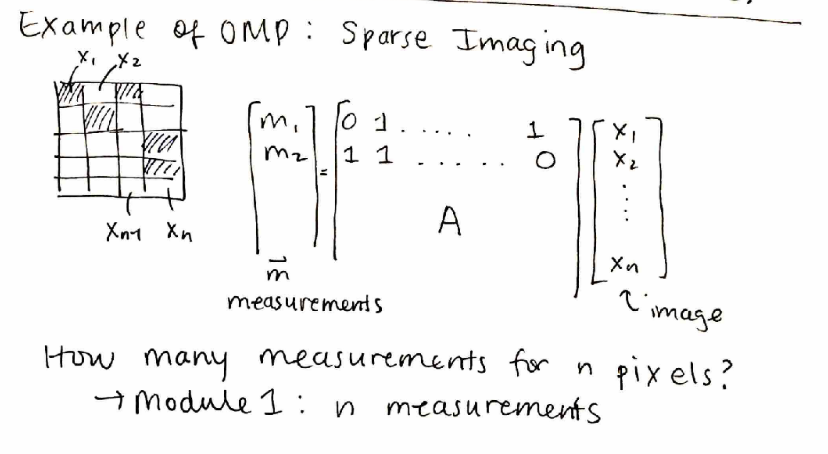 Example of OMP: Sparse Imaging
x₁ x₂
[m₁ [0 1 ..... 1 ] [x₁
m₂ = 1 1 ...... 0 x₂
A
xₙ₋₁ xₙ m⃗ xₙ]
measurements ↑ image
How many measurements for n pixels?
→ Module 1: n measurements